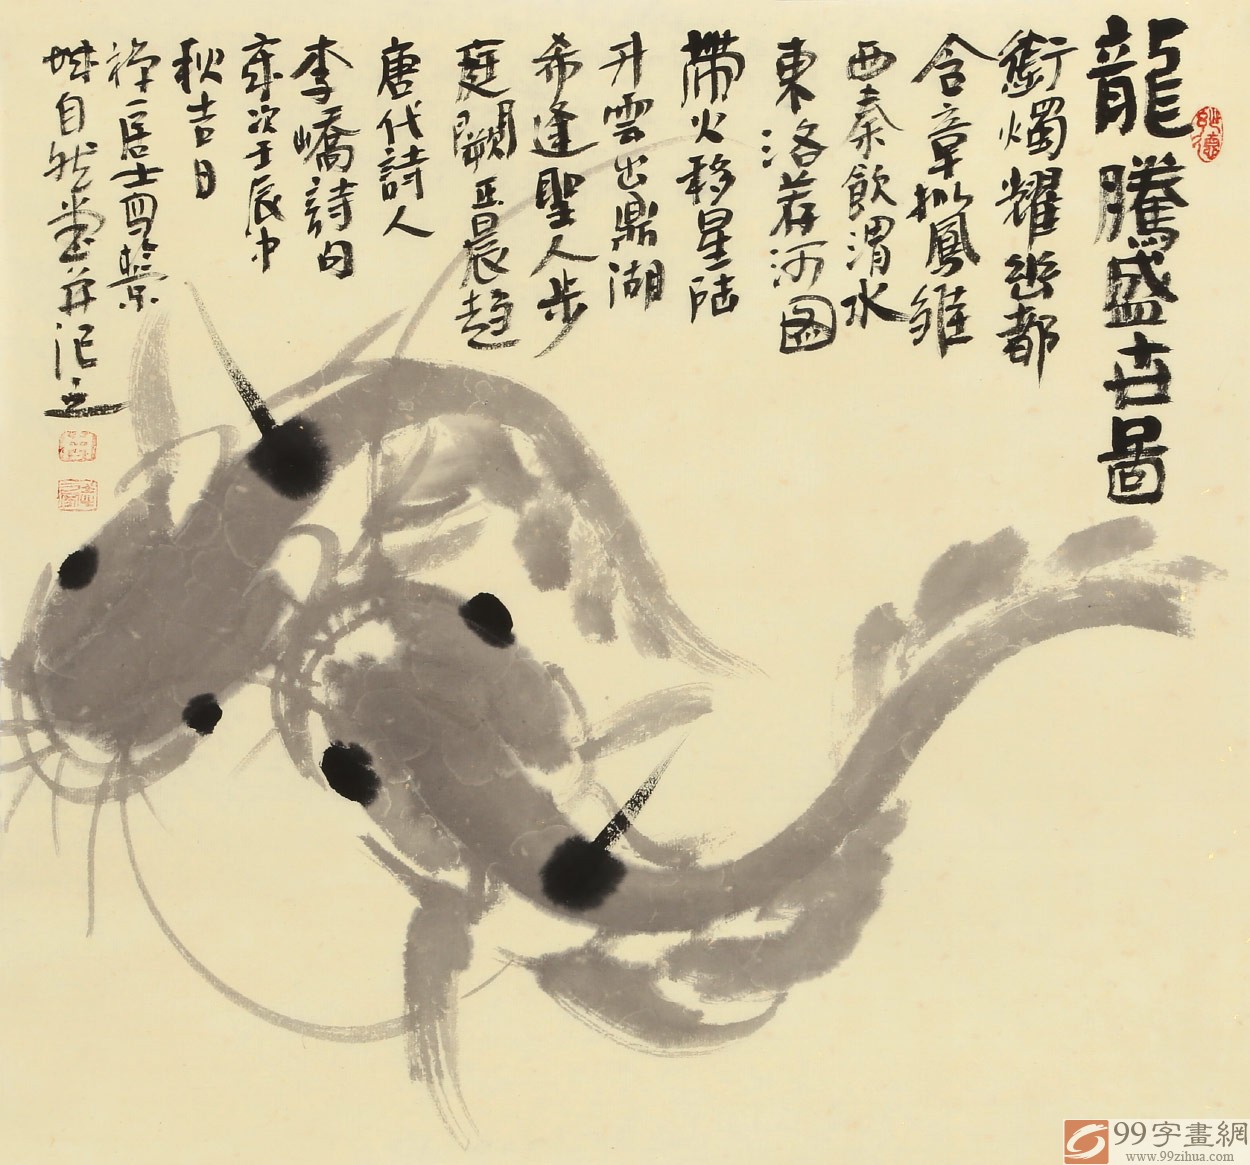 龍騰盛世圖
銜燭耀幽都
含章拟鳳雛
西秦飲渭水
東洛荐河图
帶火移星陆
升雲出鼎湖
希逢聖人步
庭闕正晨趋
唐代詩人
李嶠詩句
歲次壬辰中
秋吉日
禪居士
城自然堂并记之
99字畫網
www.99zihua.com